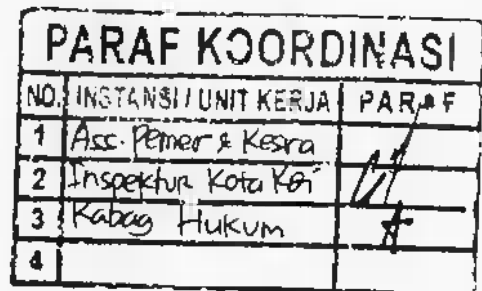 PARAF KOORDINASI
NO. INSTANSI / UNIT KERJA PARAF
1 Ass. Pemer & Kesra
2 Inspektur Kota
3 Kabag Hukum
4